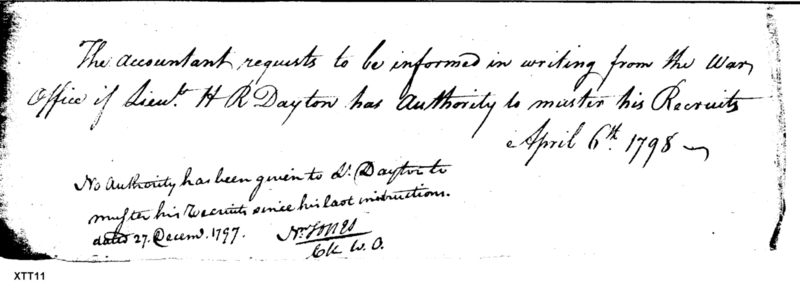 The accountant requests to be informed in writing from the War
Office if Lieut. H R Dayton has Authority to muster his Recruits
April 6th. 1798
No Authority has been given to Lt. Dayton to
muster his recruits since his last instructions.
dated 27. Decem. 1797.
Nn Jones
Ck W. O.
XTT11